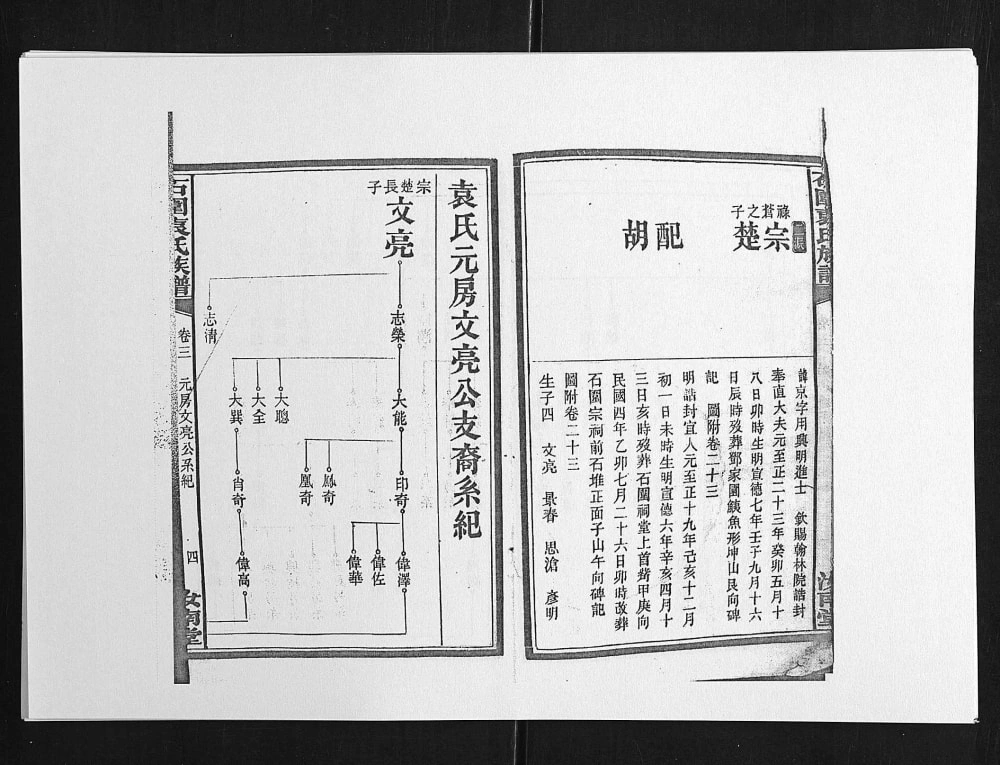 石圍袁氏族譜
汝南堂
祿蒼之子
宗楚
配
胡
諱京字用興明進士 欽賜翰林院誥封
奉直大夫元至正二十三年癸卯五月十
八日卯時生明宣德七年壬子九月十六
日辰時歿葬鄧家園鮧魚形坤山艮向碑
記 圖附卷二十三
明誥封宜人元至正十九年己亥十二月
初一日未時生明宣德六年辛亥四月十
三日亥時歿葬石圍祠堂上首喬甲庚向
民國四年乙卯七月二十六日卯時改葬
石圍宗祠前石堆正面子山午向碑記
圖附卷二十三
生子四 文亮 景春 思滄 彥明
袁氏元房文亮公支裔系紀
宗楚長子
文亮
志榮
志清
大能
大聰
大全
大巽
印奇
鳳奇
凰奇
肖奇
偉澤
偉佐
偉華
偉高
石圍袁氏族譜
卷三 元房文亮公系紀
四
汝南堂